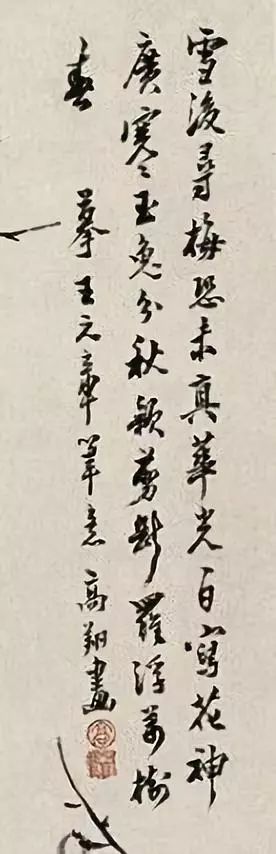 雪後尋梅恐未真華光一日寫花神
廣寒玉兔分秋穎剪斷羅浮萬樹
春 摹王元章筆意 高翔畫